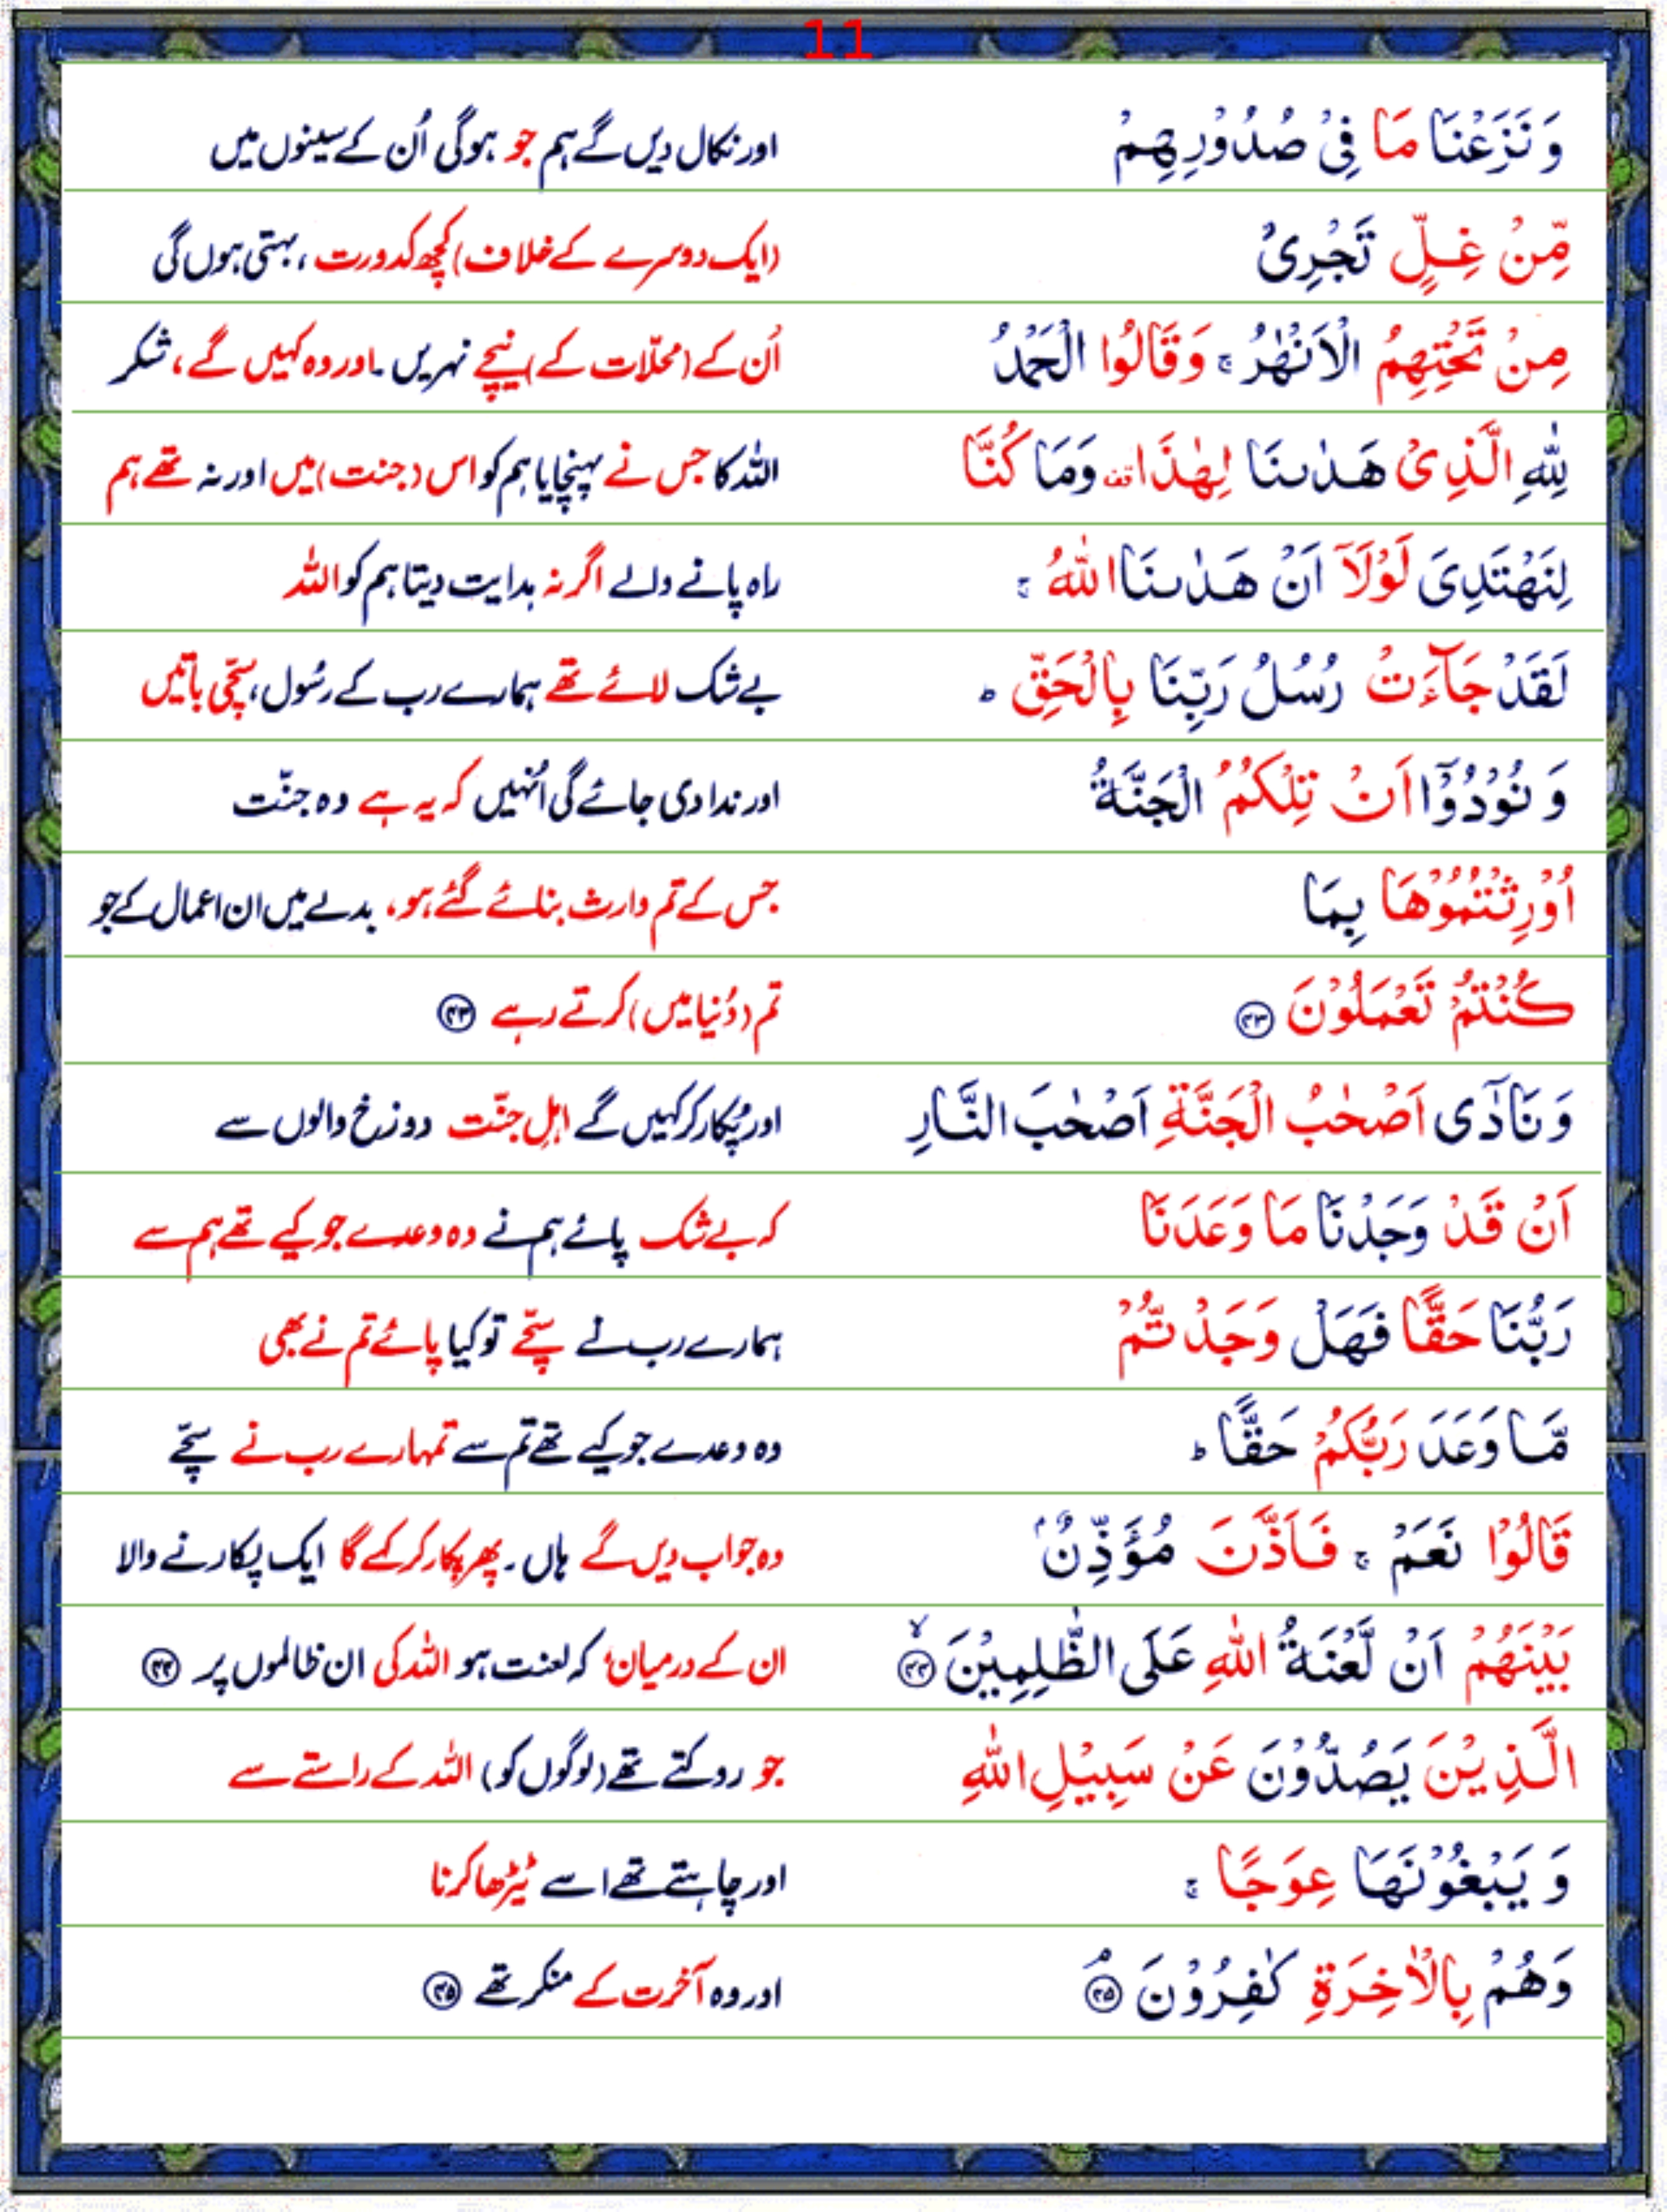 11
وَنَزَعْنَا مَا فِیْ صُدُوْرِهِمْ اور نکال دیں گے ہم جو ہوگی اُن کے سینوں میں
مِّنْ غِلٍّ تَجْرِیْ (ایک دوسرے کے خلاف) کچھ کدورت ، بہتی ہوں گی
مِنْ تَحْتِهِمُ الْاَنْهٰرُ ۚ وَقَالُوا الْحَمْدُ اُن کے (محلّات کے) نیچے نہریں ۔ اور وہ کہیں گے ، شکر
لِلّٰهِ الَّذِیْ هَدٰىنَا لِهٰذَا وَمَا كُنَّا اللہ کا جس نے پہنچایا ہم کو اس (جنت) میں اور نہ تھے ہم
لِنَهْتَدِیَ لَوْلَاۤ اَنْ هَدٰىنَا اللّٰهُ ۚ راہ پانے والے اگر نہ ہدایت دیتا ہم کو اللہ
لَقَدْ جَآءَتْ رُسُلُ رَبِّنَا بِالْحَقِّ ؕ بے شک لائے تھے ہمارے رب کے رسُول، سچّی باتیں
وَ نُوْدُوْۤا اَنْ تِلْكُمُ الْجَنَّةُ اور ندا دی جائے گی اُنہیں کہ یہ ہے وہ جنّت
اُوْرِثْتُمُوْهَا بِمَا جس کے تم وارث بنائے گئے ہو، بدلے میں ان اعمال کے جو
كُنْتُمْ تَعْمَلُوْنَ ۴۳ تم (دُنیا میں) کرتے رہے ۴۳
وَ نَادٰۤی اَصْحٰبُ الْجَنَّةِ اَصْحٰبَ النَّارِ اور پُکار کر کہیں گے اہلِ جنّت دوزخ والوں سے
اَنْ قَدْ وَجَدْنَا مَا وَعَدَنَا کہ بے شک پائے ہم نے وہ وعدے جو کیے تھے ہم سے
رَبُّنَا حَقًّا فَهَلْ وَجَدْتُّمْ ہمارے رب نے سچّے تو کیا پائے تم نے بھی
مَّا وَعَدَ رَبُّكُمْ حَقًّا ؕ وہ وعدے جو کیے تھے تم سے تمہارے رب نے سچّے
قَالُوْا نَعَمْ ۚ فَاَذَّنَ مُؤَذِّنٌۢ وہ جواب دیں گے ہاں ۔ پھر پکار کر کہے گا ایک پکارنے والا
بَيْنَهُمْ اَنْ لَّعْنَةُ اللّٰهِ عَلَی الظّٰلِمِيْنَ ۴۴ۙ ان کے درمیان، کہ لعنت ہو اللہ کی ان ظالموں پر ۴۴
الَّذِيْنَ يَصُدُّوْنَ عَنْ سَبِيْلِ اللّٰهِ جو روکتے تھے (لوگوں کو) اللہ کے راستے سے
وَ يَبْغُوْنَهَا عِوَجًا ۚ اور چاہتے تھے اسے ٹیڑھا کرنا
وَهُمْ بِالْاٰخِرَةِ كٰفِرُوْنَ ۴۵ۘ اور وہ آخرت کے منکر تھے ۴۵